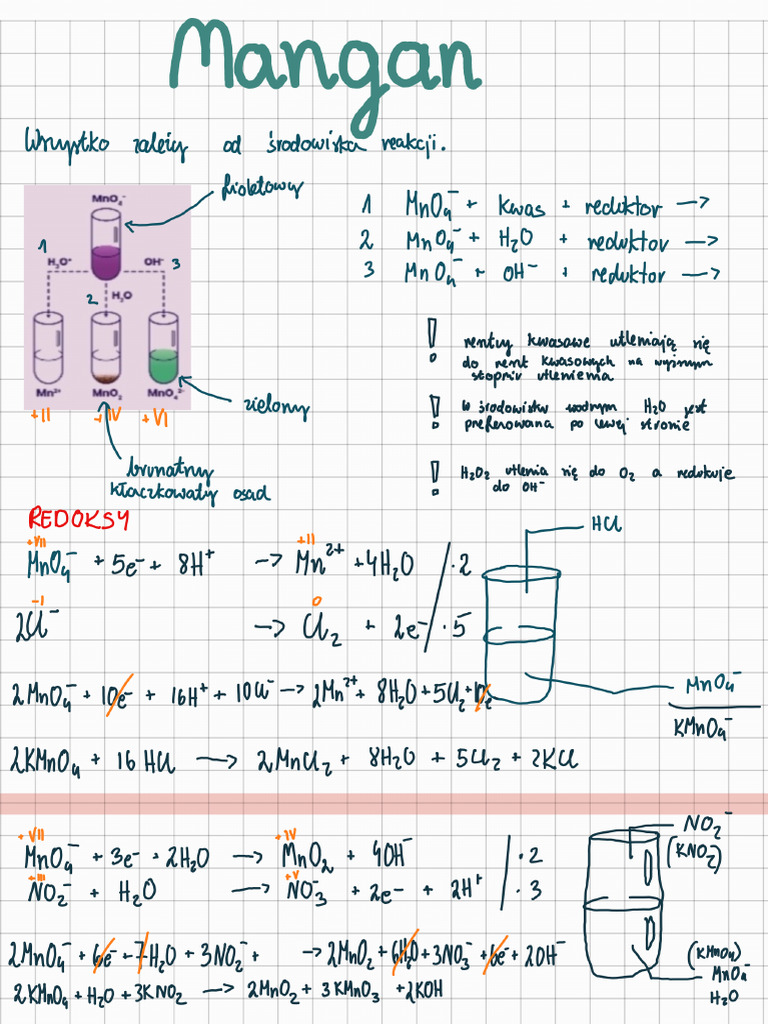 Mangan
Wszystko zależy od środowiska reakcji.
fioletowy
MnO₄⁻
1 H₃O⁺ OH⁻ 3
2 H₂O
Mn²⁺ MnO₂ MnO₄²⁻
+II +IV +VI
zielony
brunatny
kłaczkowaty osad
1 MnO₄⁻ + kwas + reduktor →
2 MnO₄⁻ + H₂O + reduktor →
3 MnO₄⁻ + OH⁻ + reduktor →
! reszty kwasowe utleniają się
do reszt kwasowych na wyższym
stopniu utlenienia
! W środowisku wodnym H₂O jest
preferowana po lewej stronie
! H₂O₂ utlenia się do O₂ a redukuje
do OH⁻
REDOKSY
+VII +II
MnO₄⁻ + 5e⁻ + 8H⁺ → Mn²⁺ + 4H₂O /·2
-I 0
2Cl⁻ → Cl₂ + 2e⁻ /·5
HCl
2MnO₄⁻ + 10e⁻ + 16H⁺ + 10Cl⁻ → 2Mn²⁺ + 8H₂O + 5Cl₂ + 10e
MnO₄⁻
KMnO₄⁻
2KMnO₄ + 16 HCl → 2MnCl₂ + 8H₂O + 5Cl₂ + 2KCl
+VII +IV
MnO₄⁻ + 3e⁻ + 2H₂O → MnO₂ + 4OH⁻ /·2
+III +V
NO₂⁻ + H₂O → NO₃⁻ + 2e⁻ + 2H⁺ /·3
NO₂⁻
(KNO₂)
2MnO₄⁻ + 6e⁻ + 7H₂O + 3NO₂⁻ + → 2MnO₂ + 6H₂O + 3NO₃⁻ + 6e⁻ + 2OH⁻
2KMnO₄ + H₂O + 3KNO₂ → 2MnO₂ + 3KMnO₃ + 2KOH
(KMnO₄)
MnO₄⁻
H₂O